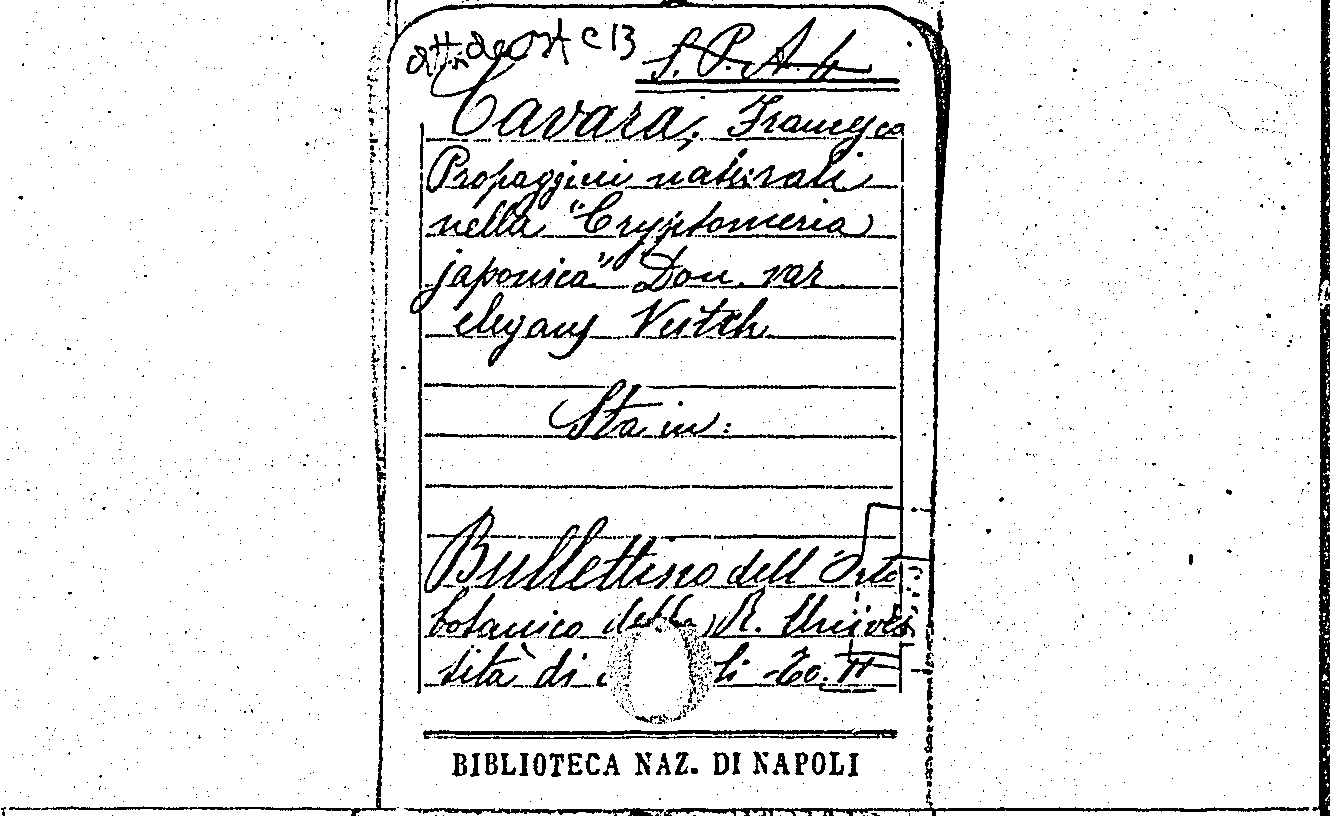 C 13
S. P. A. 4
Cavara, Francesco
Propaggini naturali
nella "Cryptomeria
japonica" Don. var
elegans Veitch
Sta in:
Bullettino dell'Orto
botanico della R. Univer
sità di li - To. II
BIBLIOTECA NAZ. DI NAPOLI